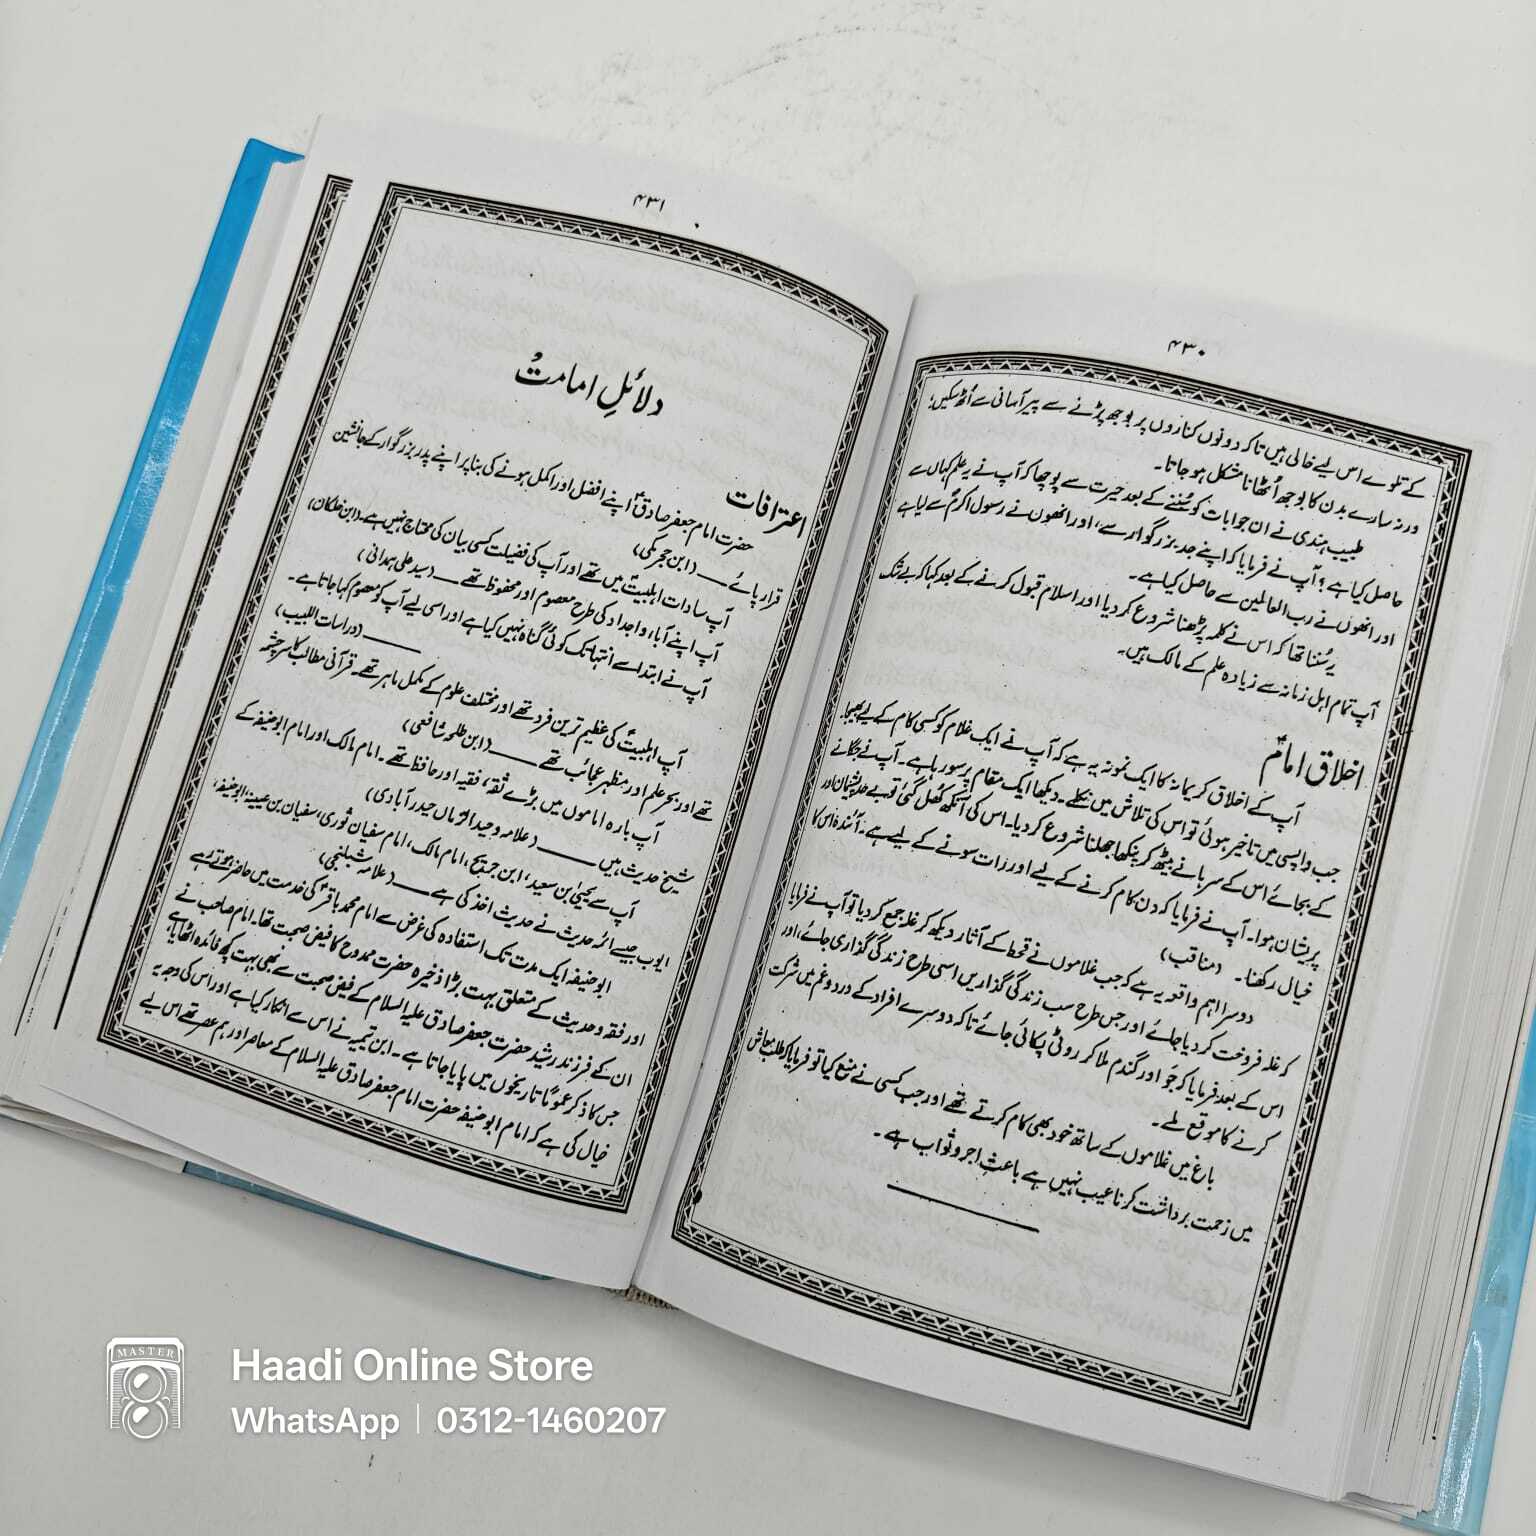 ۴۳۰
کے تلوے اس لیے خالی ہیں تاکہ دونوں کناروں پر بوجھ پڑنے سے پیر آسانی سے اُٹھ سکیں،
ورنہ سارے بدن کا بوجھ اُٹھانا مشکل ہو جاتا۔
طبیب ہندی نے ان جوابات کو سُننے کے بعد حیرت سے پوچھا کہ آپ نے یہ علم کہاں سے
حاصل کیا ہے؟ آپ نے فرمایا کہ اپنے جد بزرگوار سے، اور انھوں نے رسول اکرمؐ سے لیا ہے
اور انھوں نے رب العالمین سے حاصل کیا ہے۔
یہ سُننا تھا کہ اس نے کلمہ پڑھنا شروع کر دیا اور اسلام قبول کرنے کے بعد کہا کہ بے شک
آپ تمام اہل زمانہ سے زیادہ علم کے مالک ہیں۔
اخلاق امامؑ
آپ کے اخلاق کریمانہ کا ایک نمونہ یہ ہے کہ آپ نے ایک غلام کو کسی کام کے لیے بھیجا۔
جب واپسی میں تاخیر ہوئی تو اس کی تلاش میں نکلے۔ دیکھا ایک مقام پر سو رہا ہے۔ آپ نے جگانے
کے بجائے اس کے سرہانے بیٹھ کر پنکھا جھلنا شروع کر دیا۔ اس کی آنکھ کھُل گئی تو بے حد پشیمان اور
پریشان ہوا۔ آپ نے فرمایا کہ دن کام کرنے کے لیے اور رات سونے کے لیے ہے۔ آئندہ اس کا
خیال رکھنا۔ (مناقب)
دوسرا اہم واقعہ یہ ہے کہ جب غلاموں نے قحط کے آثار دیکھ کر غلہ جمع کر دیا تو آپ نے فرمایا
کہ غلہ فروخت کر دیا جائے اور جس طرح سب زندگی گذاریں اسی طرح زندگی گذاری جائے، اور
اس کے بعد فرمایا کہ جَو اور گندم ملا کر روٹی پکائی جائے تاکہ دوسرے افراد کے درد و غم میں شرکت
کرنے کا موقع ملے۔
باغ میں غلاموں کے ساتھ خود بھی کام کرتے تھے اور جب کسی نے منع کیا تو فرمایا کہ طلب معاش
میں زحمت برداشت کرنا عیب نہیں ہے باعثِ اجر و ثواب ہے۔
۴۳۱
دلائلِ امامت
اعترافات
حضرت امام جعفر صادقؑ اپنے افضل اور اکمل ہونے کی بنا پر اپنے پدر بزرگوار کے جانشین
قرار پائے ــــ (ابن حجر مکی)
آپ سادات اہلبیتؑ میں تھے اور آپ کی فضیلت کسی بیان کی محتاج نہیں ہے۔ (ابن خلکان)
آپ اپنے آباء و اجداد کی طرح معصوم اور محفوظ تھے ــــ (سید علی ہمدانی)
آپ نے ابتدا سے انتہا تک کوئی گناہ نہیں کیا ہے اور اسی لیے آپ کو معصوم کہا جاتا ہے۔
ــــ (دراسات اللبیب)
آپ اہلبیتؑ کی عظیم ترین فرد تھے اور مختلف علوم کے مکمل ماہر تھے۔ قرآنی مطالب کا سرچشمہ
تھے اور بحر علم اور مظہر عجائب تھے ــــ (ابن طلحہ شافعی)
آپ بارہ اماموں میں بڑے ثقہ، فقیہ اور حافظ تھے۔ امام مالک اور امام ابوحنیفہ کے
شیخ حدیث ہیں ــــ (علامہ وحید الزماں حیدرآبادی)
آپ سے یحییٰ بن سعید، ابن جریج، امام مالک، امام سفیان ثوری، سفیان بن عیینہ، ابوحنیفہ،
ایوب جیسے ائمہ حدیث نے حدیث اخذ کی ہے ــــ (علامہ شبلنجی)
ابوحنیفہ ایک مدت تک استفادہ کی غرض سے امام محمد باقرؑ کی خدمت میں حاضر ہوتے رہے
اور فقہ و حدیث کے متعلق بہت بڑا ذخیرہ حضرت ممدوح کا فیض صحبت تھا۔ امام صاحب نے
ان کے فرزند رشید حضرت جعفر صادق علیہ السلام کے فیض صحبت سے بھی بہت کچھ فائدہ اٹھایا،
جس کا ذکر عموماً تاریخوں میں پایا جاتا ہے۔ ابن تیمیہ نے اس سے انکار کیا ہے اور اس کی وجہ یہ
خیال کی ہے کہ امام ابوحنیفہ حضرت امام جعفر صادق علیہ السلام کے معاصر اور ہم عصر تھے اس لیے
MASTER
Haadi Online Store
WhatsApp | 0312-1460207